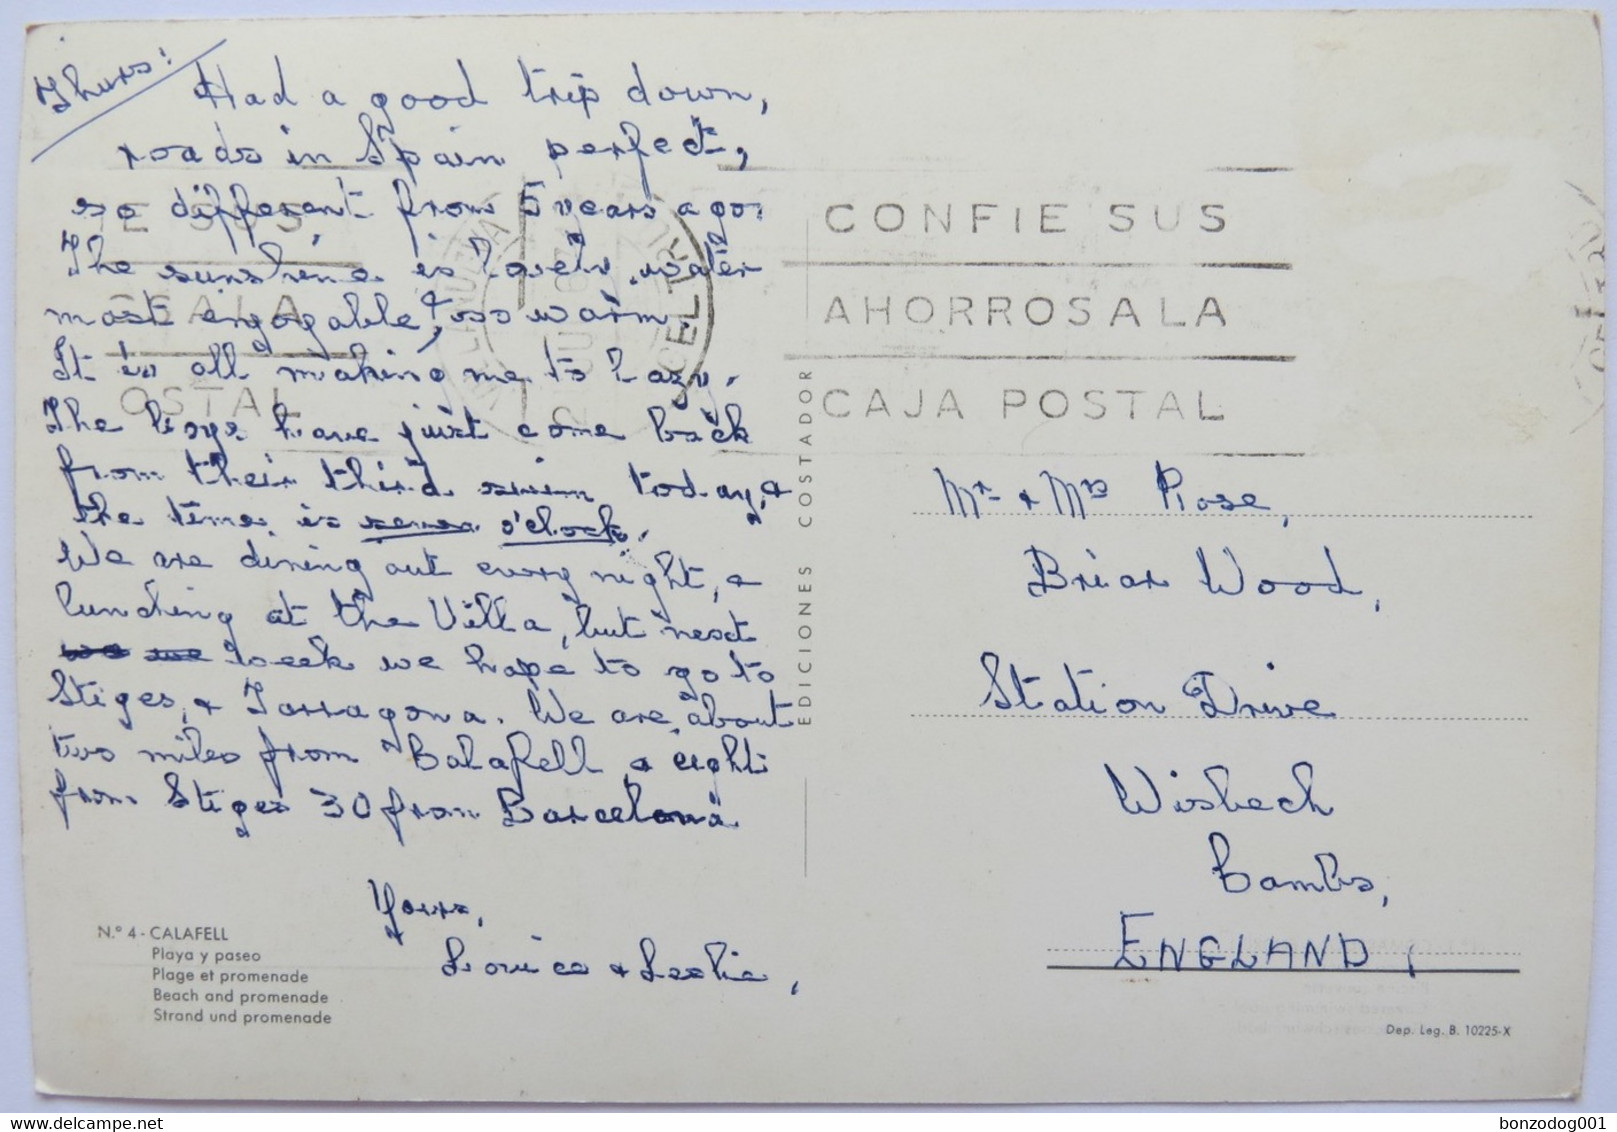 Thurs:
Had a good trip down,
roads in Spain perfect,
so different from 5 years ago.
The sunshine is lovely, water
most enjoyable, & so warm
It is all making me to lazy.
The boys have just come back
from their third swim today, &
the time is seven o'clock.
We are dining out every night, &
lunching at the Villa, but next
week we hope to go to
Stiges, & Tarragona. We are about
two miles from Calafell & eight
from Stiges 30 from Barcelona
Yours,
& Leslie,
N.º 4 - CALAFELL
Playa y paseo
Plage et promenade
Beach and promenade
Strand und promenade
EDICIONES COSTADOR
CONFIE SUS
AHORROS A LA
CAJA POSTAL
E SUS
S A LA
OSTAL
Mr & Mrs Rose,
Briar Wood,
Station Drive
Wisbech
Cambs,
ENGLAND,
Dep. Leg. B. 10225-X
bonzodog001
delcampe.net